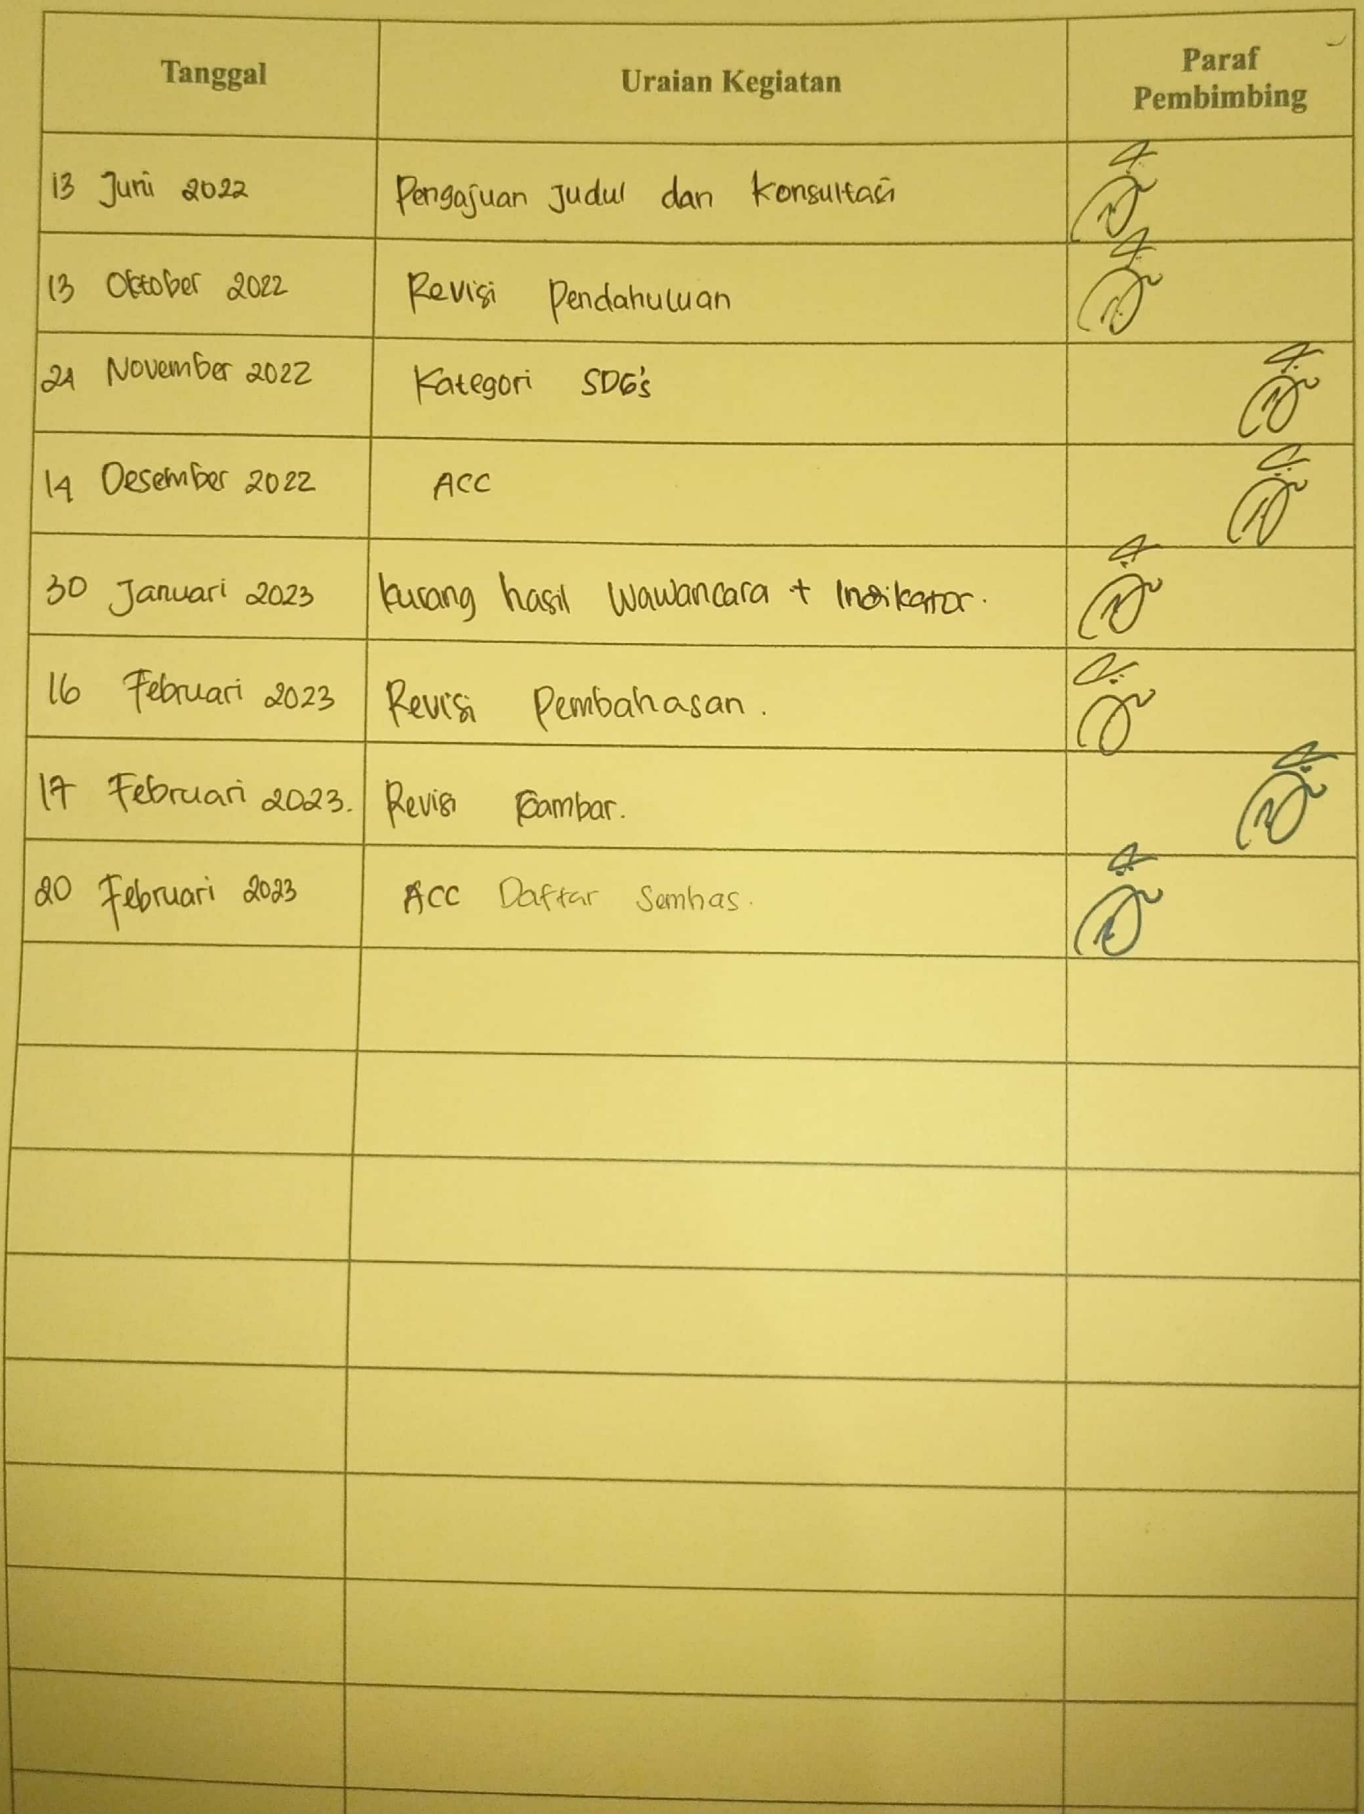 Tanggal Uraian Kegiatan Paraf Pembimbing
13 Juni 2022 Pengajuan Judul dan Konsultasi
13 Oktober 2022 Revisi Pendahuluan
24 November 2022 Kategori SDG's
14 Desember 2022 ACC
30 Januari 2023 kurang hasil Wawancara + Indikator.
16 Februari 2023 Revisi Pembahasan.
17 Februari 2023. Revisi Gambar.
20 Februari 2023 ACC Daftar Semhas.